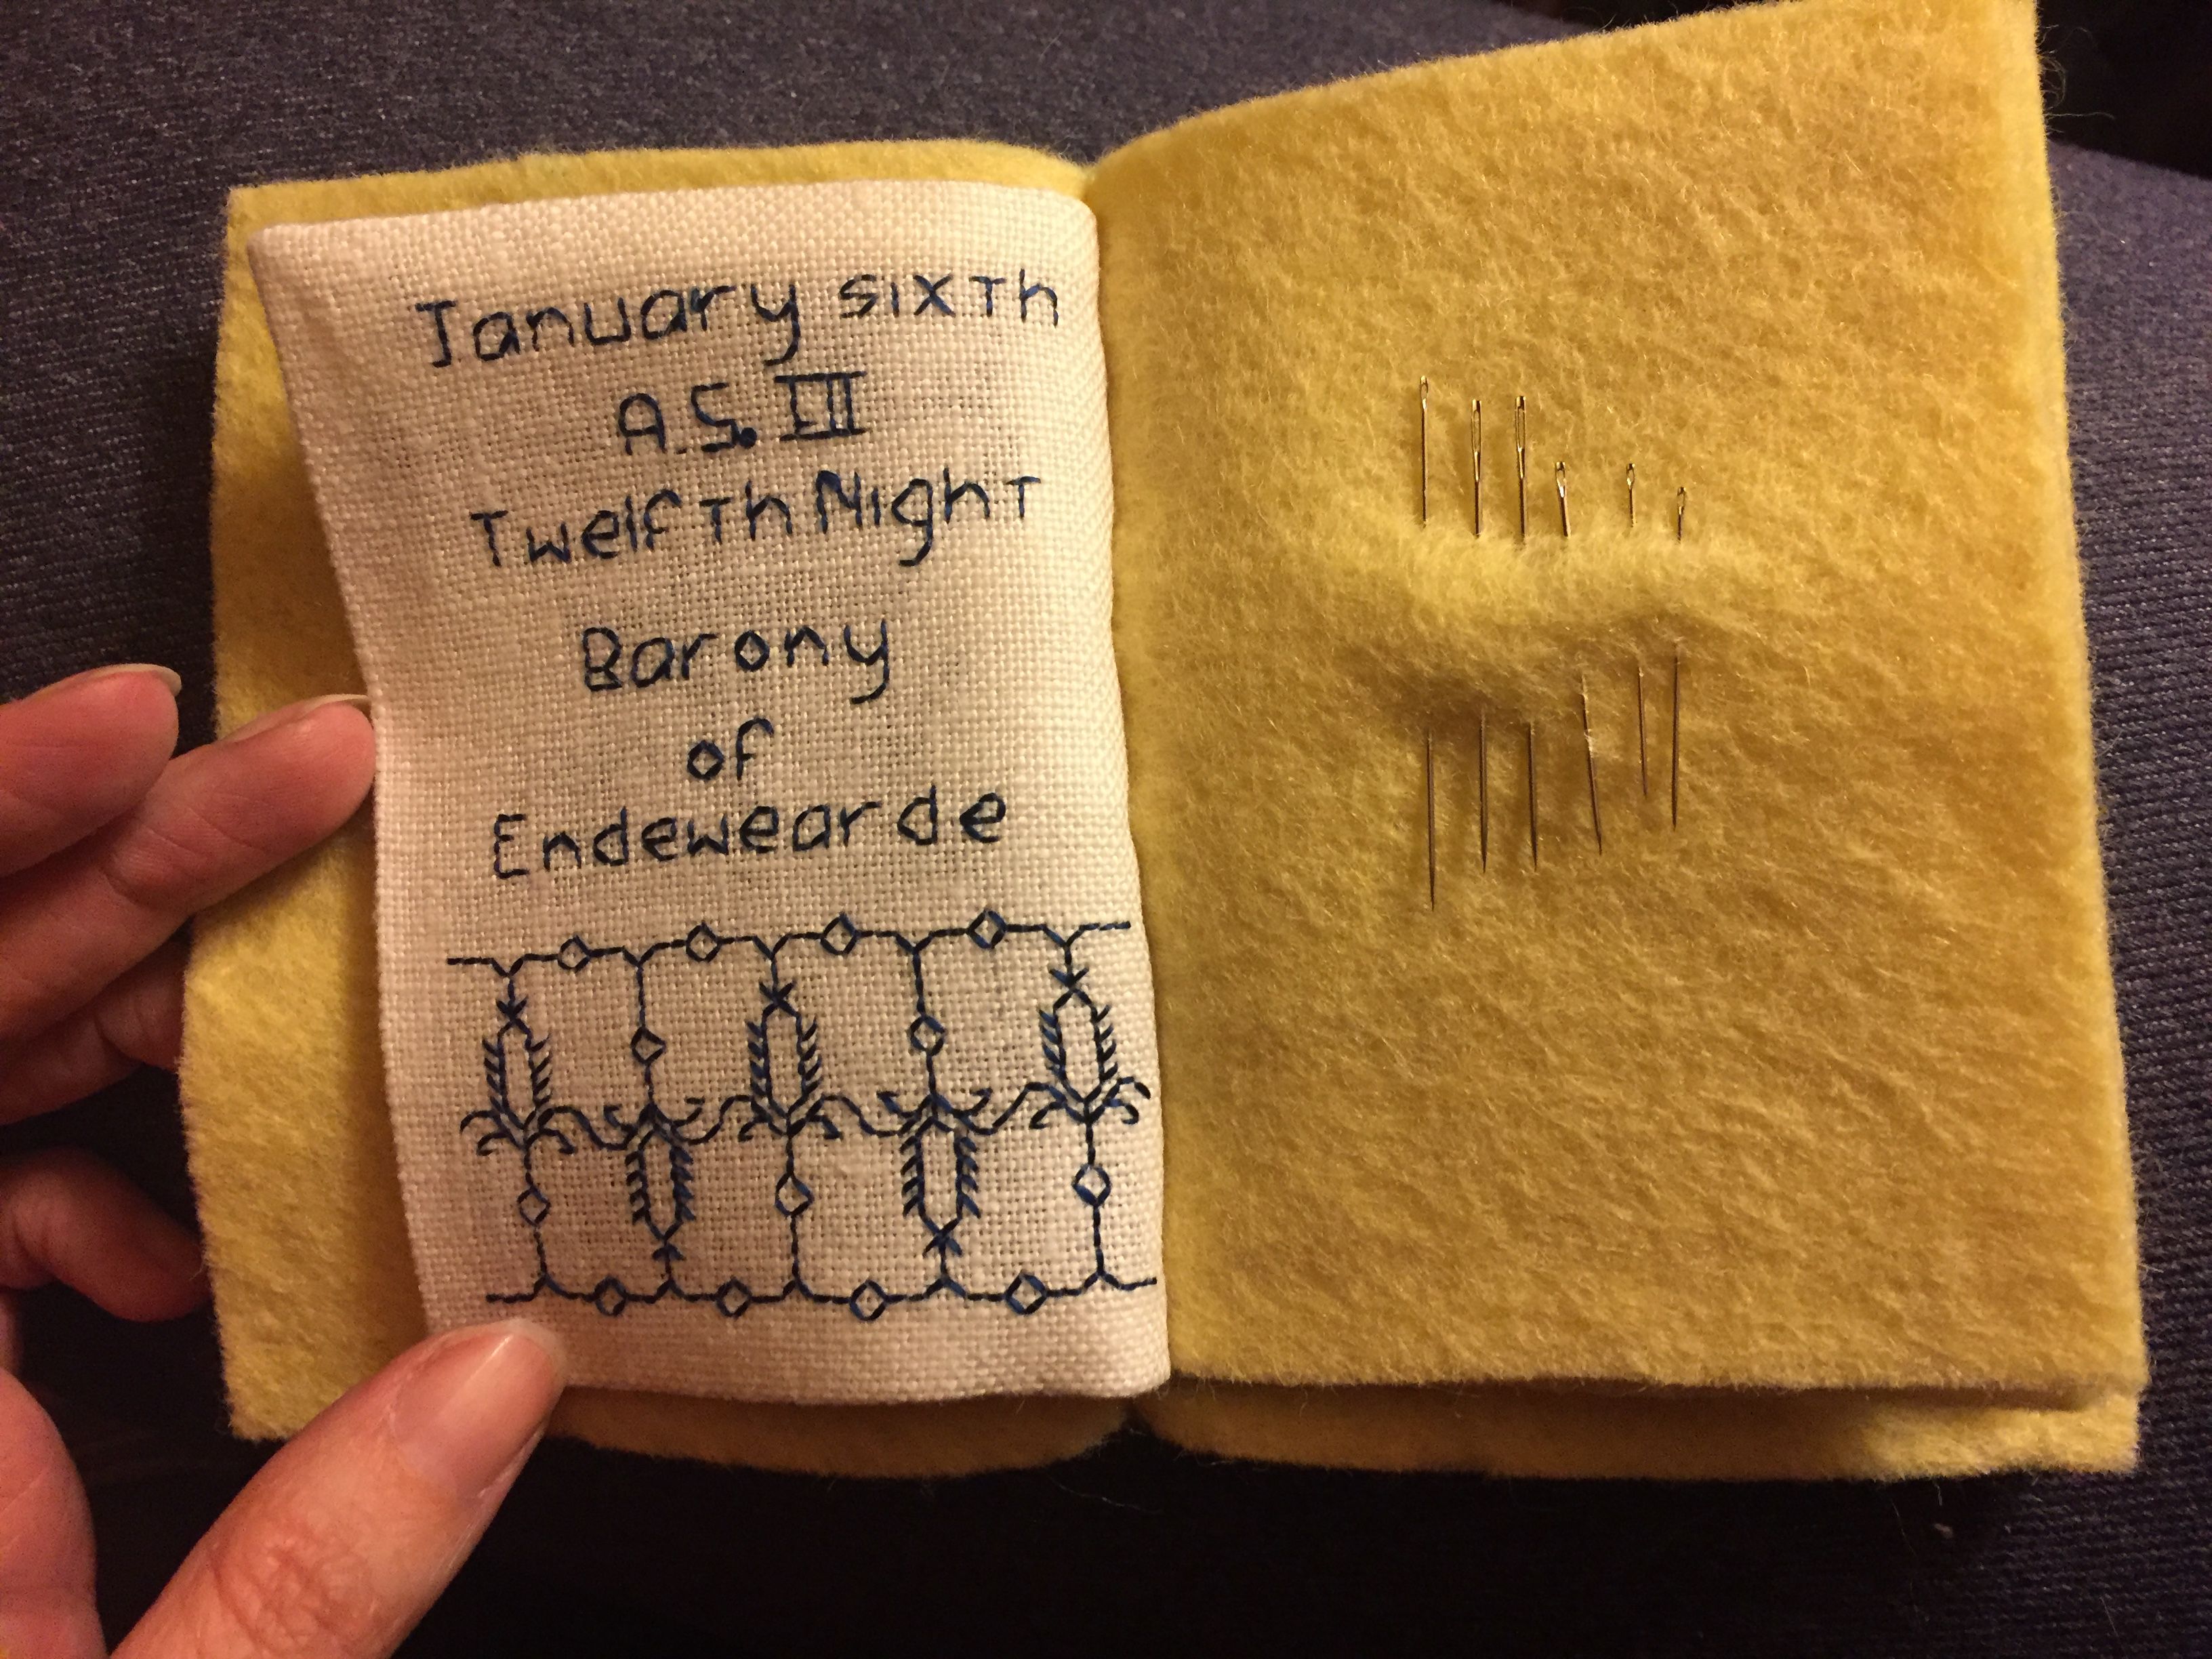 January sixth
A.S. LII
Twelfth Night
Barony
of
Endewearde